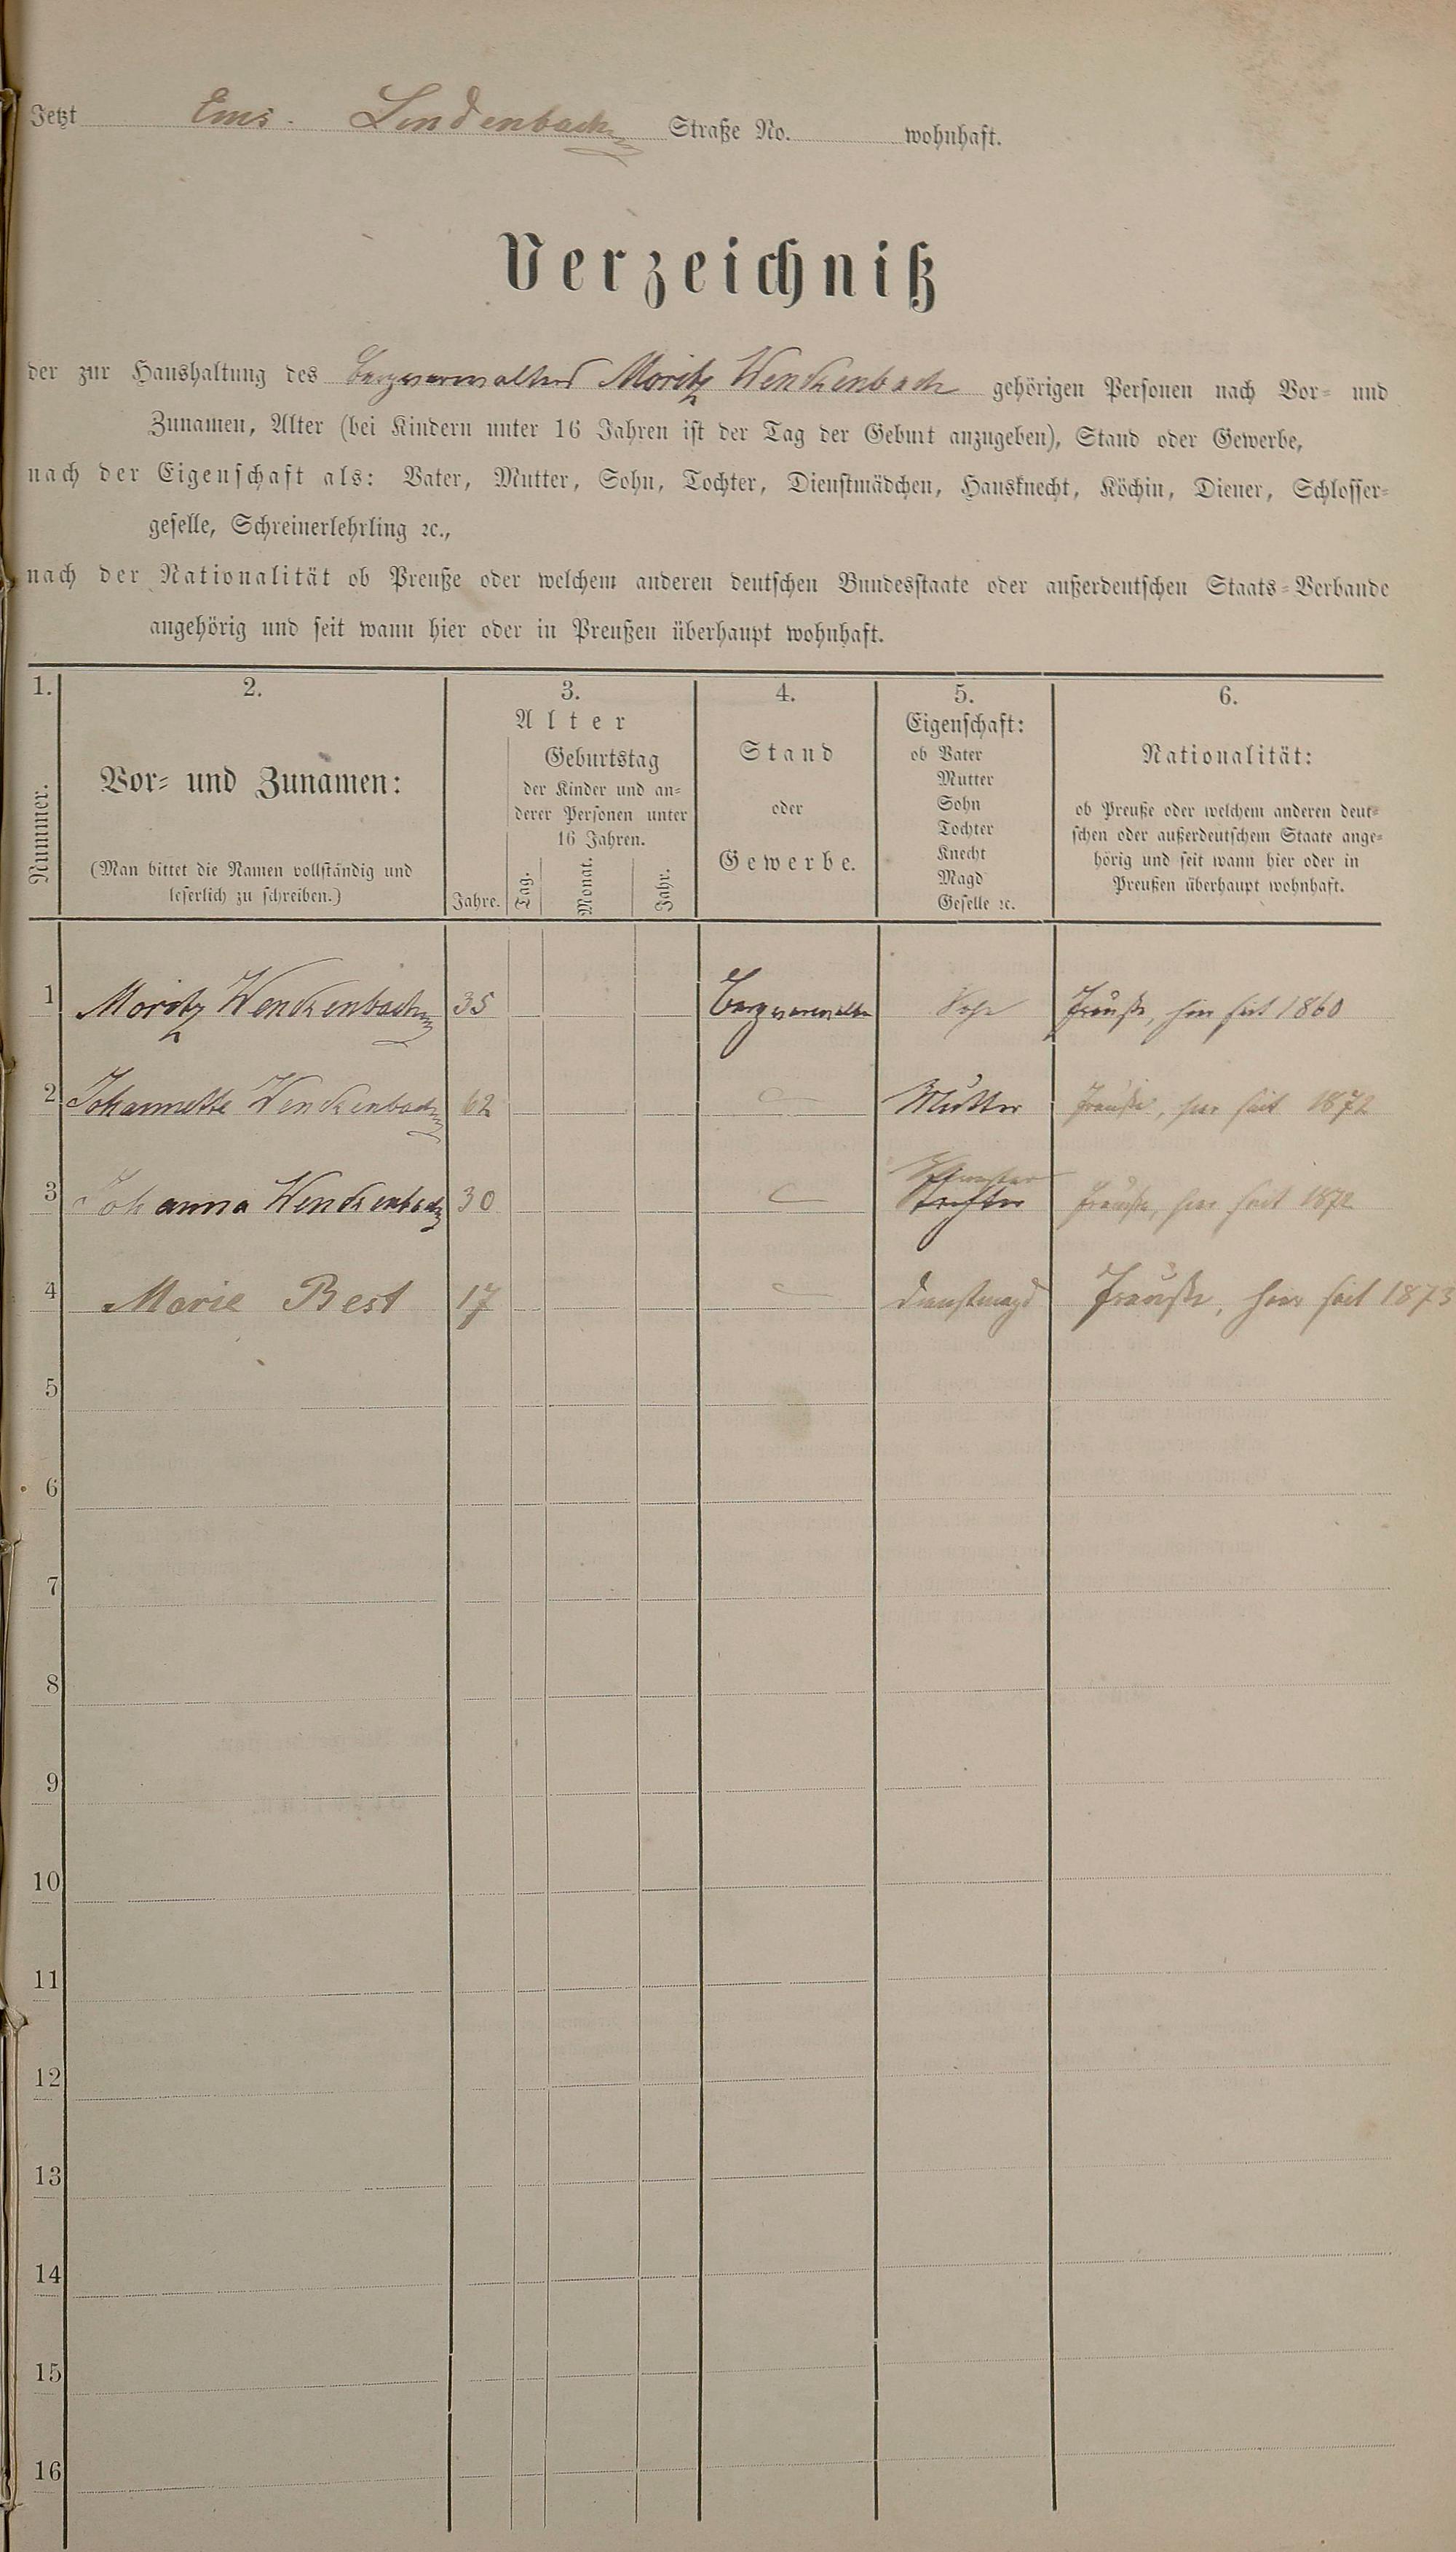 Jetzt Ems. Lindenbach Straße No. wohnhaft.
Verzeichniß
der zur Haushaltung des Bergverwalters Moritz Wenckenbach gehörigen Personen nach Vor- und
Zunamen, Alter (bei Kindern unter 16 Jahren ist der Tag der Geburt anzugeben), Stand oder Gewerbe,
nach der Eigenschaft als: Vater, Mutter, Sohn, Tochter, Dienstmädchen, Hausknecht, Köchin, Diener, Schlosser-
geselle, Schreinerlehrling ꝛc.,
nach der Nationalität ob Preuße oder welchem anderen deutschen Bundesstaate oder außerdeutschen Staats-Verbande
angehörig und seit wann hier oder in Preußen überhaupt wohnhaft.
1. 2. 3. 4. 5. 6.
Nummer.
Vor- und Zunamen:
(Man bittet die Namen vollständig und
leserlich zu schreiben.)
Alter
Jahre.
Geburtstag
der Kinder und an-
derer Personen unter
16 Jahren.
Tag. Monat. Jahr.
Stand
oder
Gewerbe.
Eigenschaft:
ob Vater
Mutter
Sohn
Tochter
Knecht
Magd
Geselle ꝛc.
Nationalität:
ob Preuße oder welchem anderen deut-
schen oder außerdeutschem Staate ange-
hörig und seit wann hier oder in
Preußen überhaupt wohnhaft.
1 Moritz Wenckenbach 35 Bergverwalter Sohn Preuße, hier seit 1860
2 Johannette Wenckenbach 62 Mutter Preuße, hier seit 1872
Schwester
3 Johanna Wenckenbach 30 Tochter Preuße, hier seit 1872
4 Marie Best 17 Dienstmagd Preuße, hier seit 1873
5
6
7
8
9
10
11
12
13
14
15
16